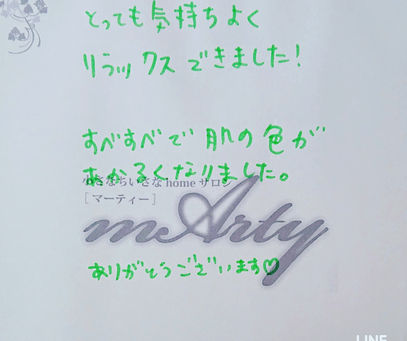 とっても気持ちよく
リラックスできました!
すべすべで肌の色が
あかるくなりました。
小さなちいさなhomeサロン
[マーティー]
mArty
ありがとうございます♡
LINE